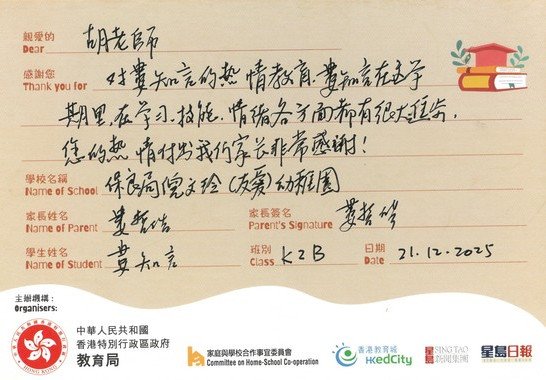 親愛的
Dear 胡老師
感謝您
Thank you for 对娄知言的热情教育,娄知言在本学
期里,在学习、技能、情绪各方面都有很大进步,
您的热情付出我们家长非常感谢!
學校名稱
Name of School 保良局倪文玲(友愛)幼稚園
家長姓名 家長簽名
Name of Parent 娄哲皓 Parent's Signature 娄哲皓
學生姓名 班別 日期
Name of Student 娄知言 Class K2B Date 21.12.2025
主辦機構:
Organisers:
HONG KONG
中華人民共和國
香港特別行政區政府
教育局
家庭與學校合作事宜委員會
Committee on Home-School Co-operation
香港教育城
HKedCity
星島 SINGTAO
新聞集團
星島日報